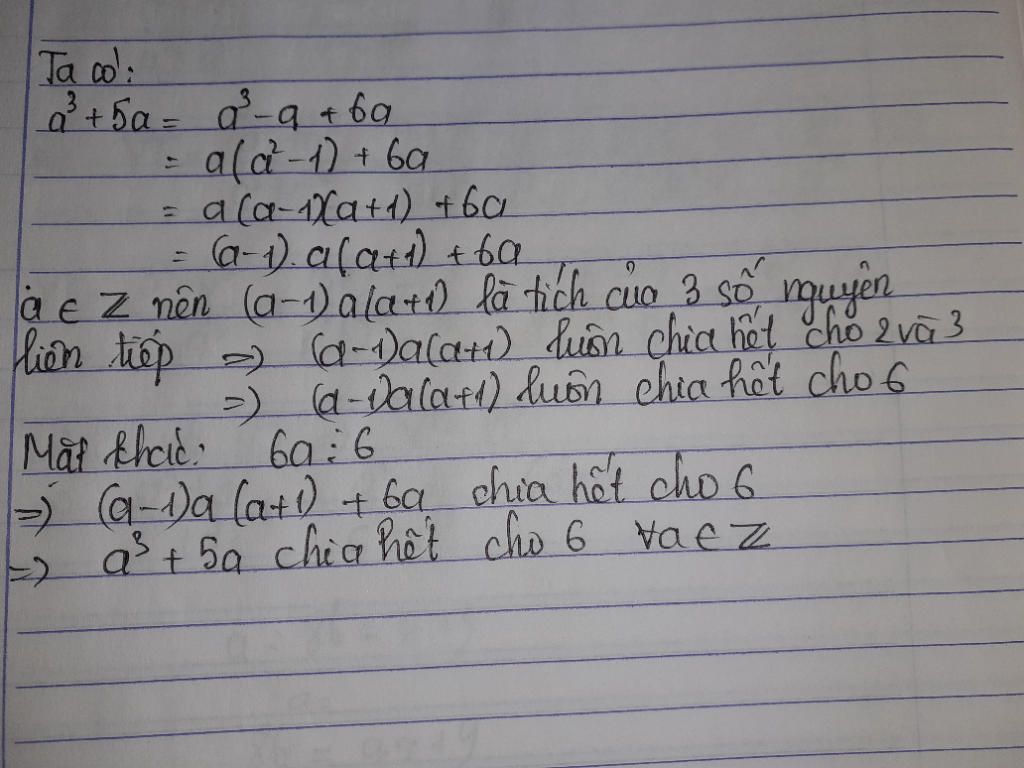 Ta có:
a³ + 5a = a³ - a + 6a
= a(a² - 1) + 6a
= a(a-1)(a+1) + 6a
= (a-1).a(a+1) + 6a
a ∈ Z nên (a-1)a(a+1) là tích của 3 số nguyên
liên tiếp => (a-1)a(a+1) luôn chia hết cho 2 và 3
=> (a-1)a(a+1) luôn chia hết cho 6
Mặt khác: 6a ⋮ 6
=> (a-1)a(a+1) + 6a chia hết cho 6
=> a³ + 5a chia hết cho 6 ∀a ∈ Z